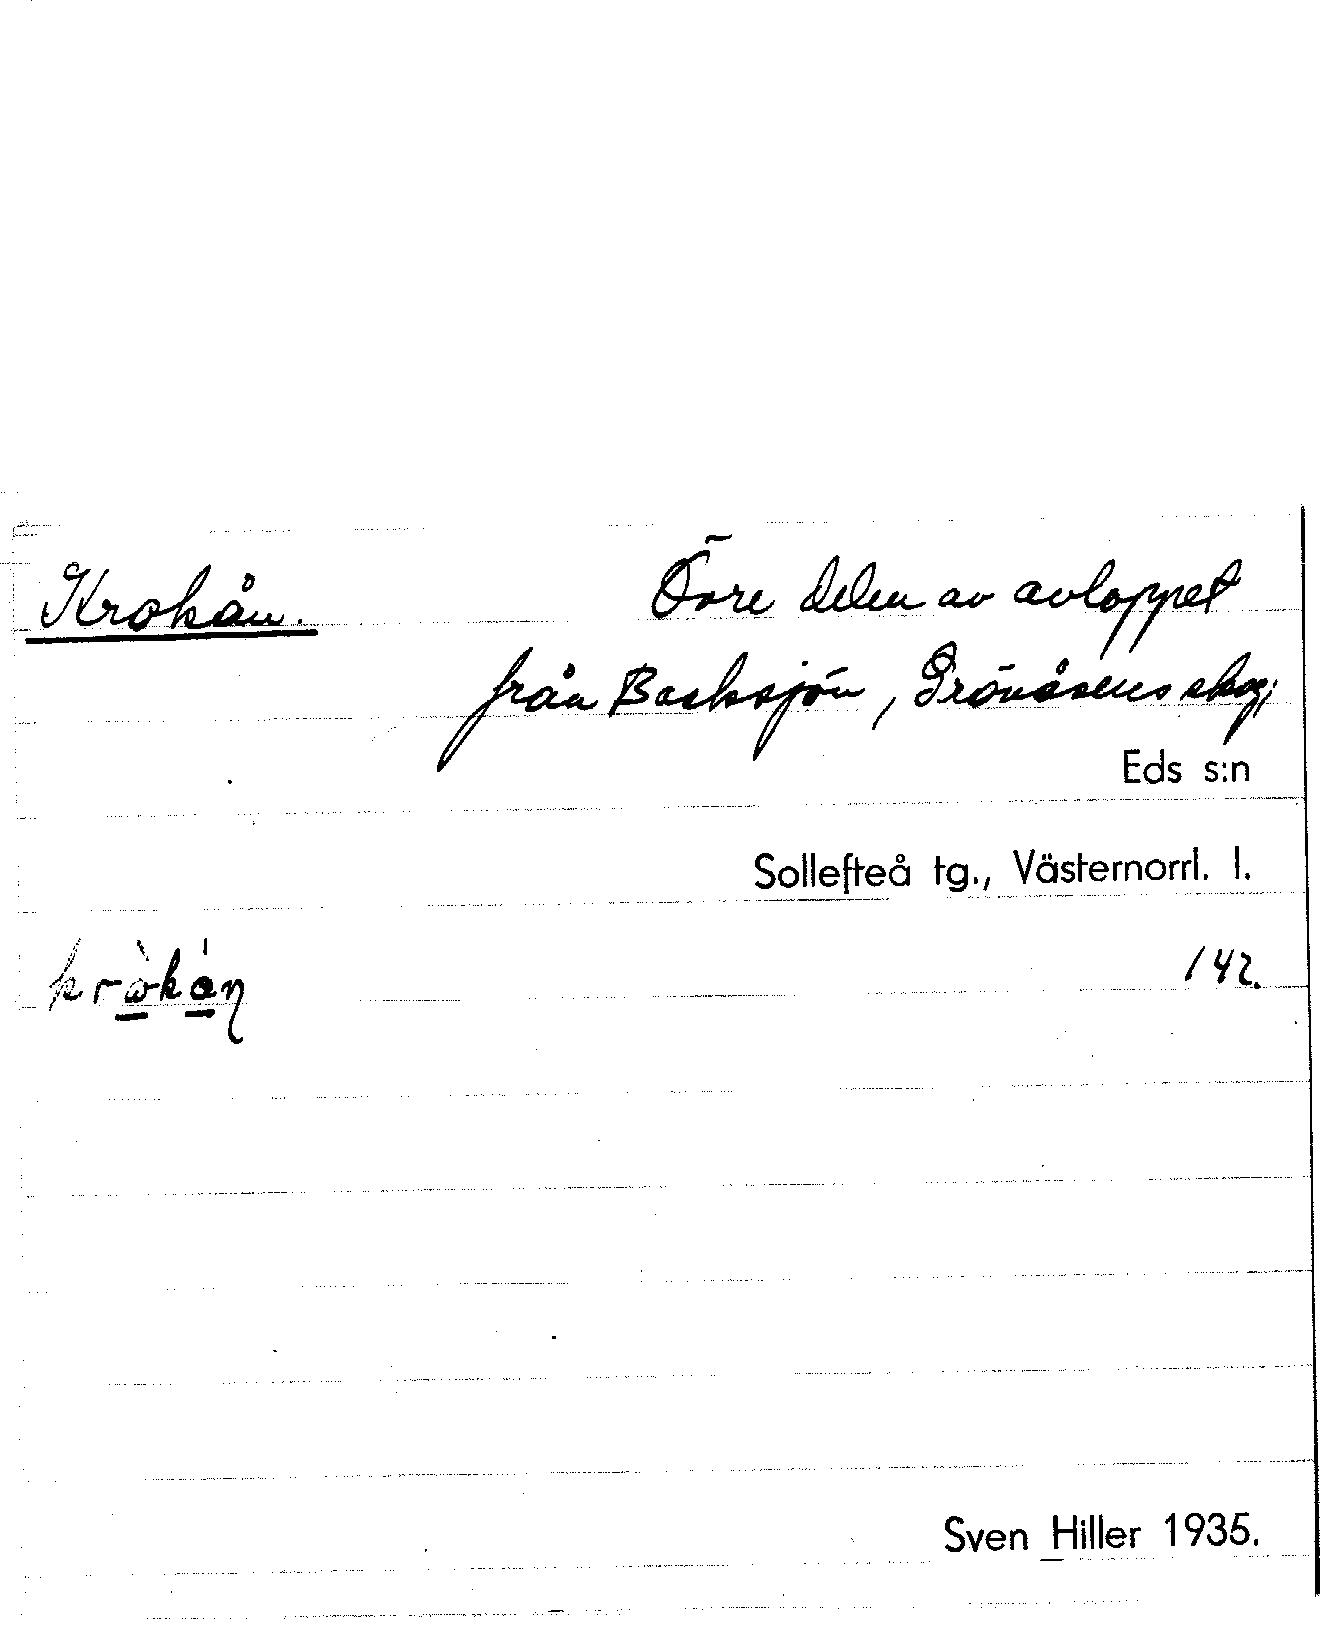 Krokån.
Övre delen av avloppet
från Backsjön, Grönåsens skog;
Eds s:n
Sollefteå tg., Västernorrl. l.
142.
Sven Hiller 1935.